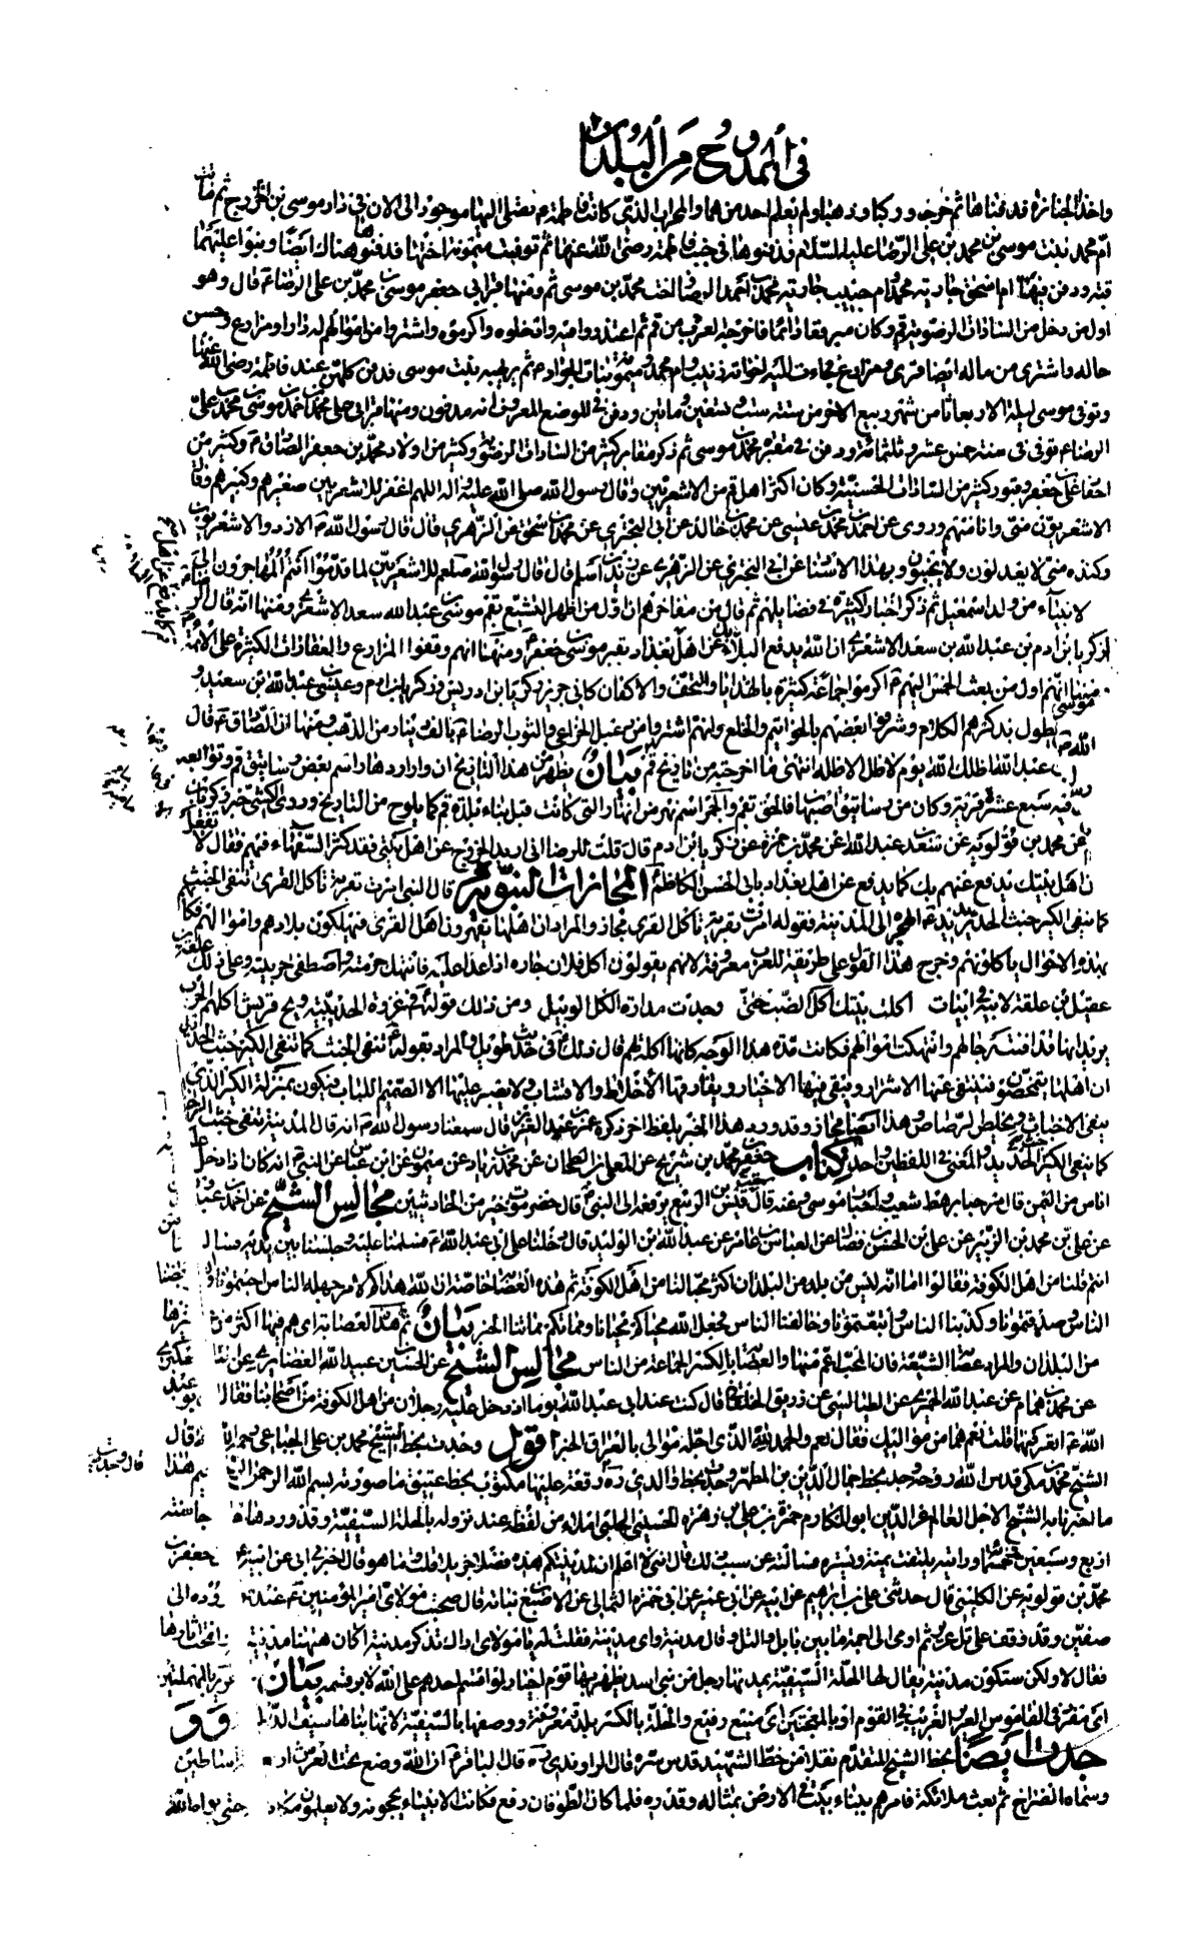 في الممدوح من البلدان
واخذ الجنازة فدفناها ثم خرجا وركبا وذهبا ولم يعلم احد من هما والمحراب الذي كانت فاطمة ع تصلي اليها موجود الى الان في دار موسى بن الخزرج ثم ماتت
ام محمد بنت موسى بن محمد بن علي الرضا عليه السلام فدفنوها في جنب فاطمة رضي الله عنها ثم توفيت ميمونة اختها فدفنوها هناك ايضا وبنوا عليهما
قبة ودفن فيها ام اسحق جارية محمد وام حبيب جارية محمد بن احمد الرضا واخت محمد بن موسى ثم ومنها قبر ابي جعفر موسى بن محمد بن علي الرضا ع قال وهو
اول من دخل من السادات الرضوية قم وكان مبرقعا دائما فاخرجه العرب من قم ثم اعتذروا منه وادخلوه واكرموه واشتروا من اموالهم له دارا ومزارع وحسن
حاله واشترى من ماله ايضا قرى ومزارع فجاءت اليه اخواته زينب وام محمد وميمونة بنات الجواد ع ثم بريهية بنت موسى فدفن كلهن عند فاطمة رضي الله عنها
وتوفي موسى ليلة الاربعاء ثامن شهر ربيع الاخر من سنة ست وتسعين ومائتين ودفن في الموضع المعروف انه مدفون ومنها قبر ابي علي محمد بن احمد بن موسى بن محمد بن علي
الرضا ع توفي في سنة خمس عشر وثلثمائة ودفن في مقبرة محمد بن موسى ثم ذكر مقابر كثير من السادات الرضوية وكثير من اولاد محمد بن جعفر الصادق ع وكثير من
احفاد علي بن جعفر وقبور كثير من السادات الحسنية وكان اكثر اهل قم من الاشعريين وقال رسول الله صلى الله عليه واله اللهم اغفر للاشعريين صغيرهم وكبيرهم وقال
الاشعريون مني وانا منهم وروى عن احمد بن محمد بن عيسى عن محمد بن خالد عن ابي البختري عن محمد بن اسحق عن الزهري قال قال رسول الله ص الازد والاشعريون
وكنده مني لا يعدلون ولا يجبنون وبهذا الاسناد عن ابي البختري عن الزهري عن زيد بن اسلم قال قال رسول الله صلعم للاشعريين لما قدموا انتم المهاجرون الى
الانبياء من ولد اسمعيل ثم ذكر اخبار كثيرة في فضايلهم ثم قال من مفاخرهم ان اول من اظهر التشيع بقم موسى بن عبد الله بن سعد الاشعري ومنها انه قال الرضا ع
لزكريا بن ادم بن عبد الله بن سعد الاشعري ان الله يدفع البلاء بك عن اهل قم كما يدفع البلاء عن اهل بغداد بقبر موسى بن جعفر ع ومنها انهم وقفوا المزارع والعقارات الكثيرة على الائمة
ومنها انهم اول من بعث الخمس اليهم ومنها انهم ع اكرموا جماعة كثيرة بالهدايا والتحف والاكفان كابي جرير زكريا بن ادريس وزكريا بن ادم وعيسى بن عبد الله بن سعد
يطول بذكرهم الكلام وشرفوا بعضهم بالخواتيم والخلع وانهم اشتروا من دعبل الخزاعي ثوب الرضا ع بالف دينار من الذهب ومنها ان الصادق ع قال
بن عبد الله اظلك الله يوم لا ظل الا ظله انتهى ما اخرجته من تاريخ قم بيان يظهر من هذا التاريخ ان واراردهار اسم بعض رساتيق قم وتوابعه
فيه سبع عشرة قرية وكان من رساتيق اصبهان فالحق بقم والجمر اسم نهر من انهار التي كانت قبل بناء بلدة قم كما يلوح من التاريخ وروى الكشي
عن محمد بن قولويه عن سعد بن عبد الله عن محمد بن حمزة عن زكريا بن ادم قال قلت للرضا ع اني اريد الخروج عن اهل بيتي فقد كثر السفهاء فيهم فقال لا تفعل
فان اهل بيتك يدفع عنهم بك كما يدفع عن اهل بغداد بابي الحسن الكاظم ع المجازات النبوية قال النبي ص امرت بقرية تاكل القرى تنفي الخبث
كما ينفي الكير خبث الحديد يريد ع الهجرة الى المدينة فقوله ع امرت بقرية تاكل القرى مجاز والمراد ان اهلها يقهرون اهل القرى فيملكون بلادهم واموالهم فكانهم
بهذه الاحوال ياكلونهم وخرج هذا القول على طريقة للعرب معروفة لانهم يقولون اكل فلان جاره اذا عدا عليه فانتهك حرمته واصطفى حريبته وعلى ذلك
عقيل بن علقة لابنه في ابيات اكلت بنيك اكل الضب حتى وجدت مرارة الكلا الوبيل ومن ذلك قوله ع في غزوة الحديبية ويح قريش اكلهم الحرب
يريد انها قد افنت رجالهم وانتهكت اموالهم فكانت من هذا الوجه كانها اكلة لهم قال ذلك ع في حديث طويل والمراد بقوله ع تنفي الخبث كما تنفي الكير خبث الحديد
ان اهلها يتمحصون فينتفي عنها الاشرار ويبقى فيها الاخيار ويفارقها الاخلاط والاوشاب ولا يصبر عليها الا الصميم اللباب فيكون بمنزلة الكير الذي
ينفي الاخباث ويخلص الرصاص وهذا ايضا مجاز وقد ورد هذا الخبر بلفظ اخر ذكره عمر بن عبد العزيز قال سمعنا رسول الله ص انه قال المدينة تنفي خبث الرجال
كما ينفي الكير خبث الحديد والمعنى في اللفظين واحد كتاب جعفر بن محمد بن شريح عن المعلى الطحان عن محمد بن زياد عن ميمون عن ابن عباس عن النبي ص انه كان اذا دخل
اناس من اليمن قال مرحبا برهط شعيب واحبار موسى ومنه قال قيس بن الربيع يرفعه الى النبي ص قال حضرموت خير من الحارثيين مجالس الشيخ عن احمد بن عبدون
عن علي بن محمد بن الزبير عن علي بن الحسن بن فضال عن العباس بن عامر عن عبد الله بن الوليد قال دخلنا على ابي عبد الله ع فسلمنا عليه وجلسنا بين يديه فسال
انتم قلنا من اهل الكوفة فقال اما انه ليس من بلد من البلدان اكثر محبا لنا من اهل الكوفة ثم هذه العصابة خاصة ان الله هداكم لامر جهله الناس احببتمونا
الناس وصدقتمونا وكذبنا الناس واتبعتمونا وخالفنا الناس فجعل الله محياكم محيانا ومماتكم مماتنا الخبر بيان ثم هذه العصابة اي هم فيها اكثر من
من البلدان والمراد عصابة الشيعة فان المحب اعم منها والعصابة بالكسر الجماعة من الناس مجالس الشيخ عن الحسين بن عبيد الله الغضائري عن
عن محمد بن همام عن عبد الله الحميري عن الطيالسي عن زريق الخلقاني قال كنت عند ابي عبد الله ع يوما اذ دخل عليه رجلان من اهل الكوفة من اصحابنا فقال
الله ع اتعرفهما قلت نعم هما من مواليك فقال نعم والحمد لله الذي اجل موالي بالعراق الخبر اقول وجدت بخط الشيخ محمد بن علي الجباعي
الشيخ محمد بن مكي قدس الله روحه وجد بخط جمال الدين بن المطهر وجدت بخط والدي ره رقعة عليها مكتوب بخط عتيق ما صورته بسم الله الرحمن الرحيم هذا
ما اخبرنا به الشيخ الاجل العالم عز الدين ابو المكارم حمزة بن علي بن زهرة الحسيني الحلبي املاء من لفظه عند نزوله بالحلة السيفية وقد وردها حاجا سنة
اربع وسبعين وخمسمائة ورايته يلتفت يمنة ويسرة فسالته عن سبب ذلك قال انني لاعلم ان لمدينتكم هذه فضلا جزيلا قلت وما هو قال اخبرني ابي عن ابيه عن جعفر بن
محمد بن قولويه عن الكليني قال حدثني علي بن ابراهيم عن ابيه عن ابن ابي عمير عن ابي حمزة الثمالي عن الاصبغ بن نباته قال صحبت مولاي امير المؤمنين ع عند وروده الى
صفين وقد وقف على تل عرير ثم اومى الى اجمة ما بين بابل والتل وقال مدينة واي مدينة فقلت له يا مولاي اراك تذكر مدينة اكان ههنا مدينة وانمحت اثارها
فقال لا ولكن ستكون مدينة يقال لها الحلة السيفية يمدنها رجل من بني اسد يظهر بها قوم اخيار لو اقسم احدهم على الله لابر قسمه بيان
اي منفرد في القاموس العرير الغريب في القوم او بالمعجمتين اي منيع رفيع والحلة بالكسر بلدة معروفة ووصفها بالسيفية لانها بناها سيف الدولة و
وجدت ايضا بخط الشيخ المتقدم نقلا من خط الشهيد قدس سره قال الراوندي ره قال الباقر ع ان الله وضع تحت العرش اربع اساطين
وسماه الضراح ثم بعث ملائكة فامرهم ببناء بيت في الارض بمثاله وقدره فلما كان الطوفان رفع فكانت الانبياء يحجونه ولا يعلمون مكانه حتى بواه الله